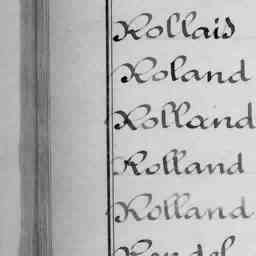 Rollais
Roland
Rolland
Rolland
Rolland